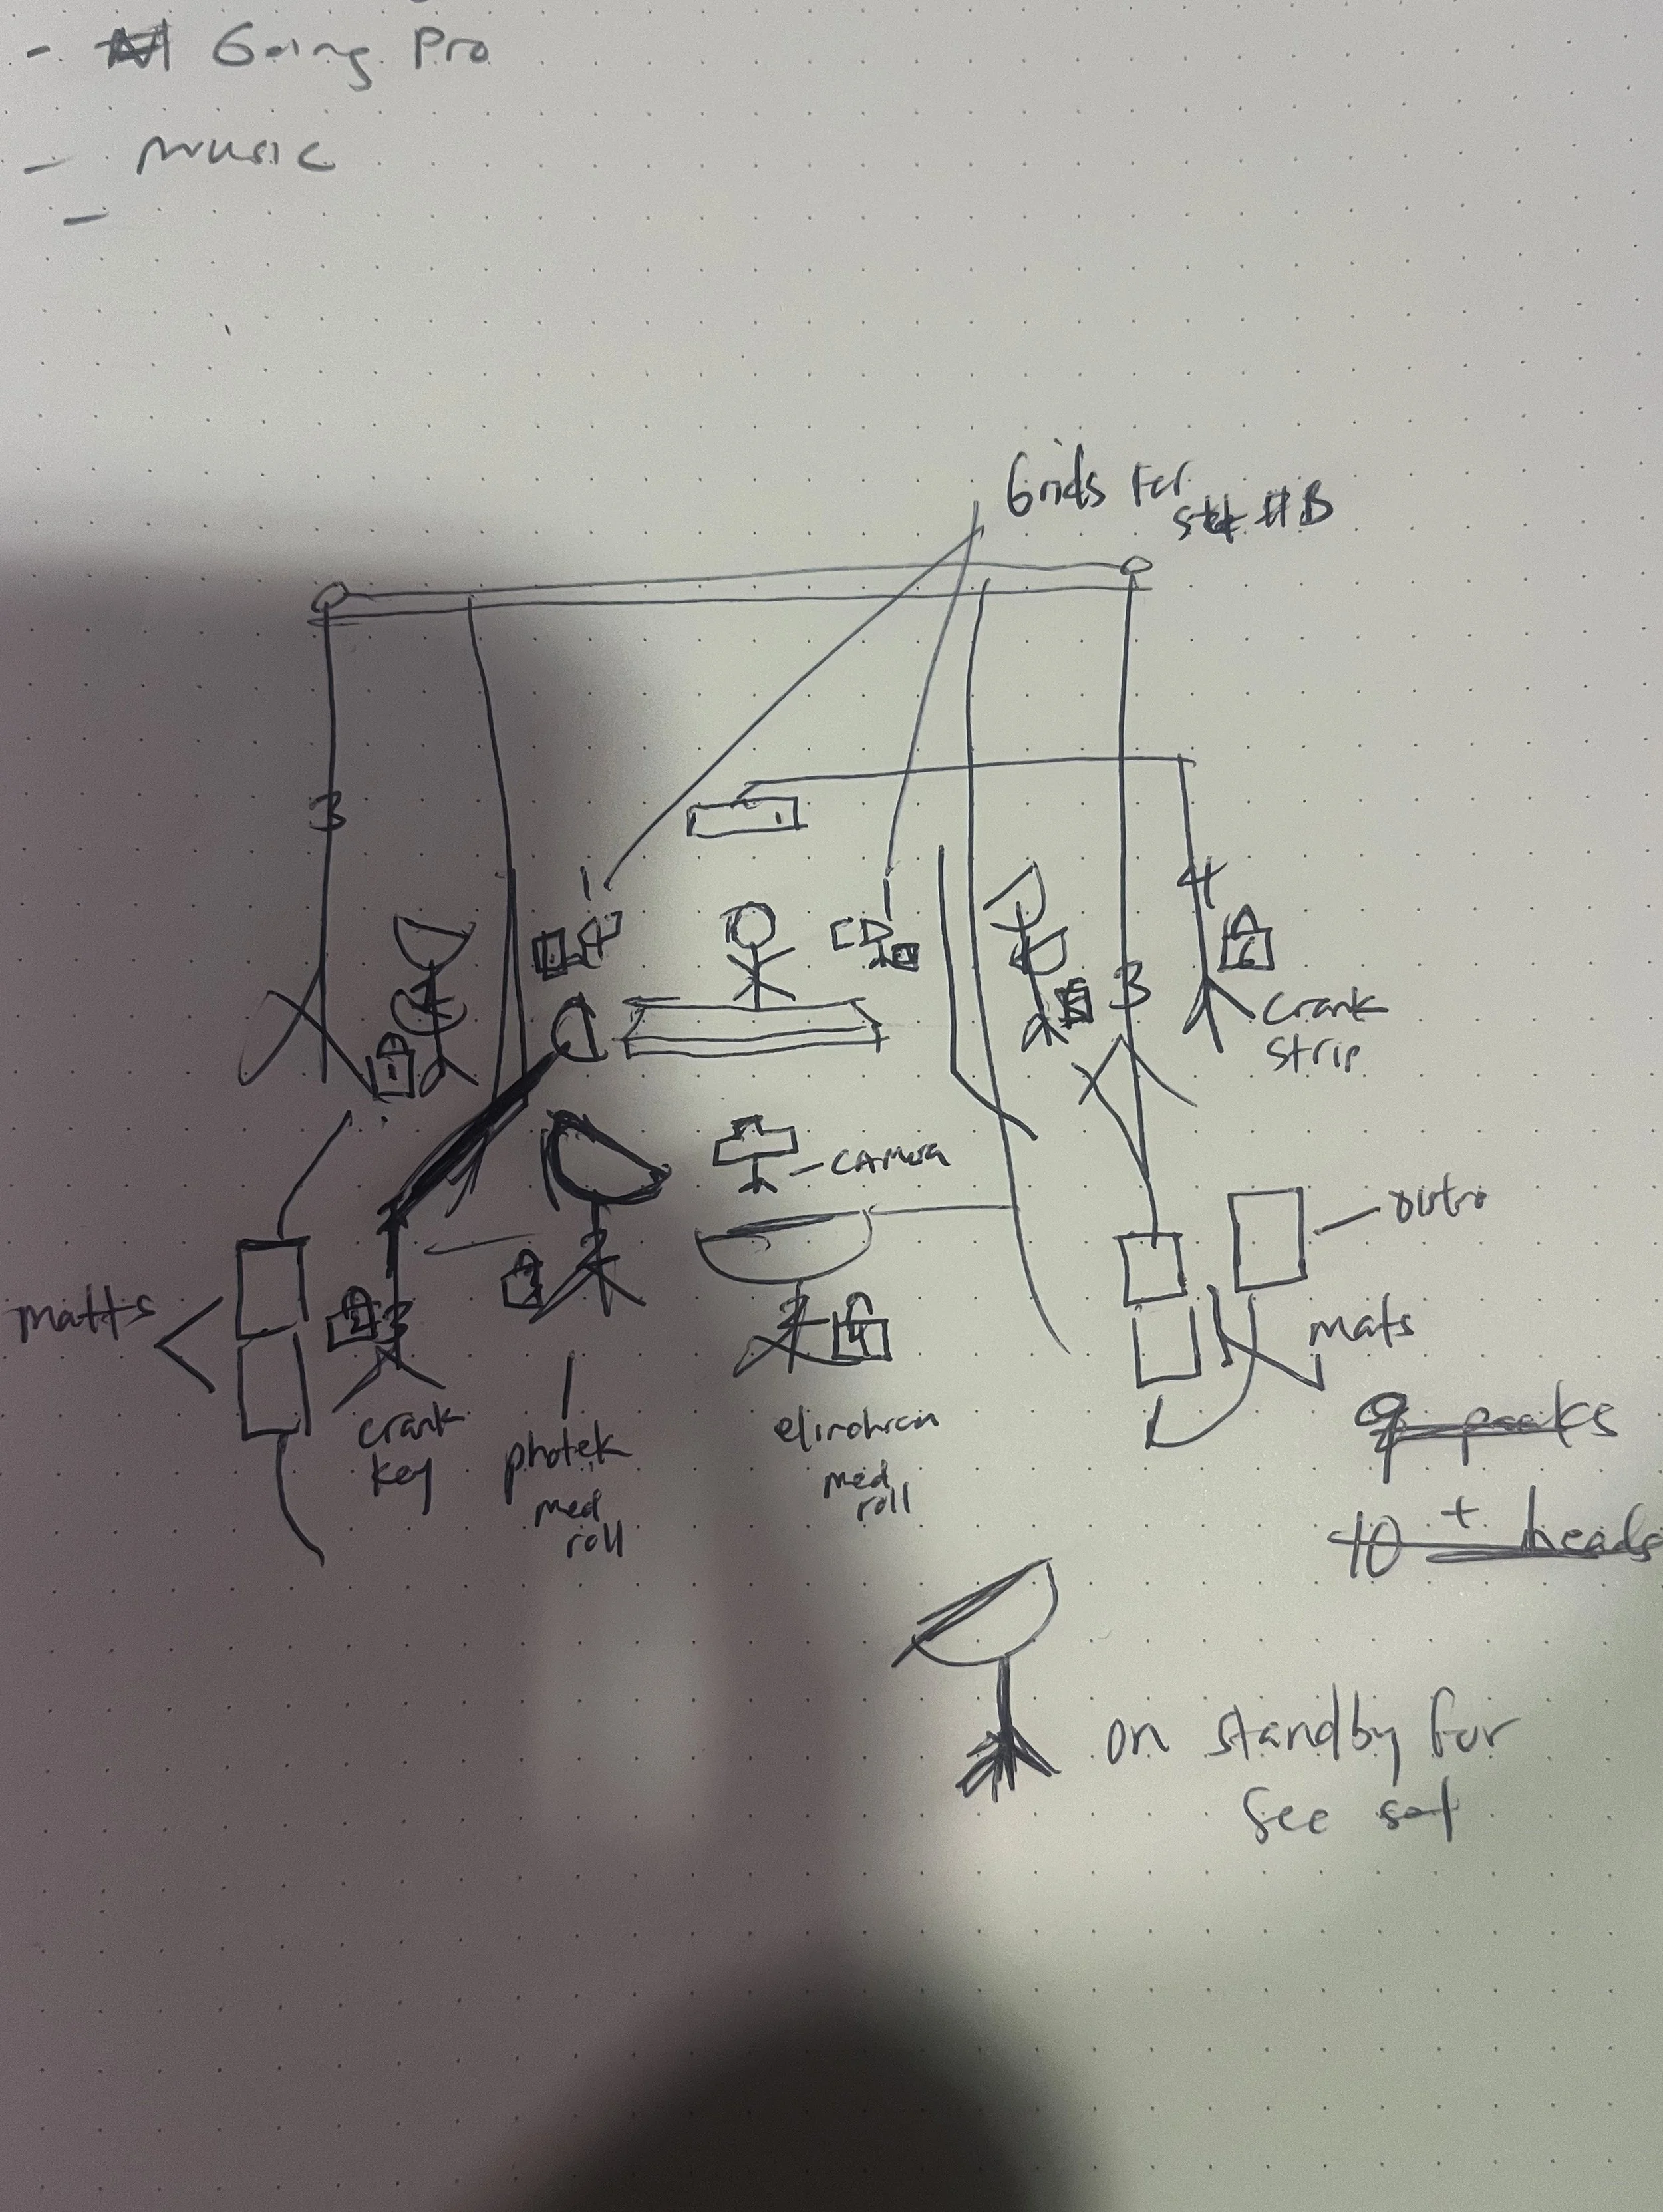 - Going Pro
- music
-
Grids For
set #B
3
4
1
1
3
crank
strip
6
1
camera
outro
matts
mats
3
4
crank
key
photek
med
roll
med
roll
9 packs
10 + heads
on standby for
see set